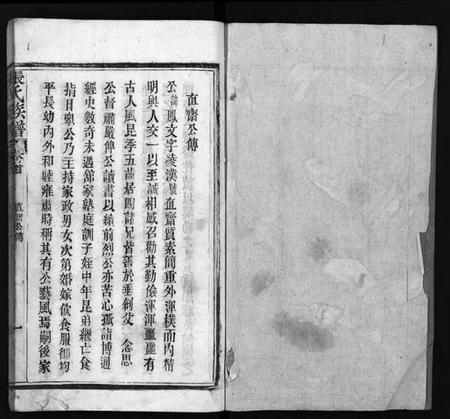 直齋公傳
公諱鳳文字凌漢號直齋質素簡重外樸而內精
明與人交一以至誠相感召勸其勤儉渾渾噩噩有
古人風昆季五齒居四諸兄皆善於垂創父 念思
公督肅嚴俾公讀書以績前烈公亦苦心孤詣博通
經史數奇未遇節家塾庭訓子姪中年昆弟繼亡食
指日衆公乃主持家政男女次第婚嫁飲食服御均
平長幼內外和睦雍肅時稱其有公藝風焉嗣後家
張氏族譜 卷首 直齋公傳 一